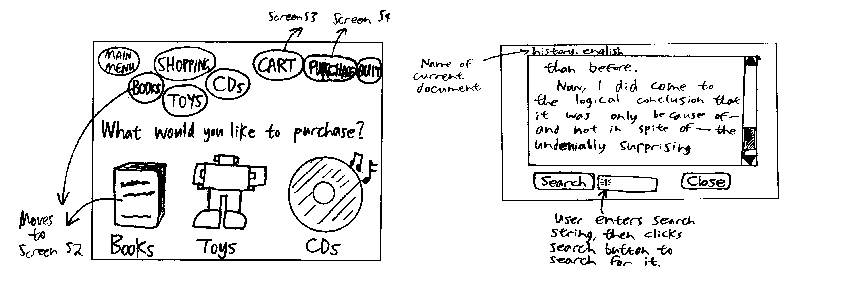 Screen S3
Screen S4
MAIN MENU
SHOPPING
CART
PURCHASE
QUIT
BOOKS
CDs
TOYS
What would you like to purchase?
Moves
to
Screen S2
Books
Toys
CDs
Name of
current
document
history.english
than before.
Now, I did come to
the logical conclusion that
it was only because of—
and not in spite of— the
undeniably surprising
Search
Close
User enters search
string, then clicks
search button to
search for it.